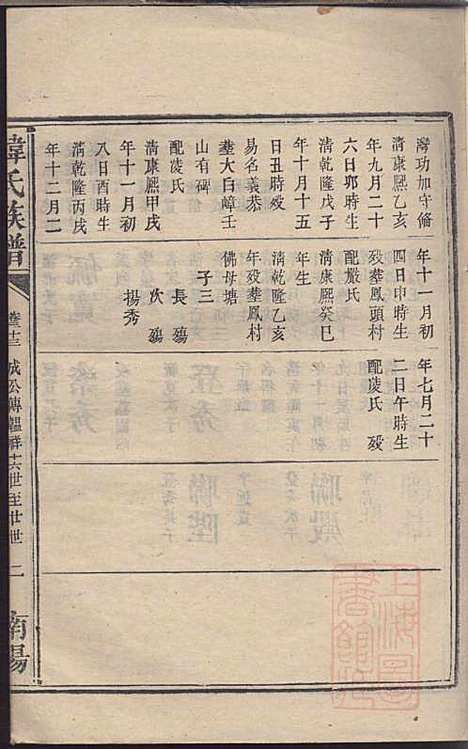 灣功加守備
清康熙乙亥
年九月二十
六日卯時生
清乾隆戊子
年十月十五
日丑時歿
易名義恭
塟大白嶂壬
山有碑
配凌氏
清康熙甲戌
年十一月初
八日酉時生
清乾隆丙戌
年十二月二
年十一月初
四日申時生
歿塟鳳頭村
配嚴氏
清康熙癸巳
年生
清乾隆乙亥
年歿塟鳳村
佛母塘
子三
長殤
次殤
揚秀
年七月二十
二日午時生
配凌氏歿
韓氏族譜
成公傳韞祥十六世至廿世
二
南陽
上海圖書館藏